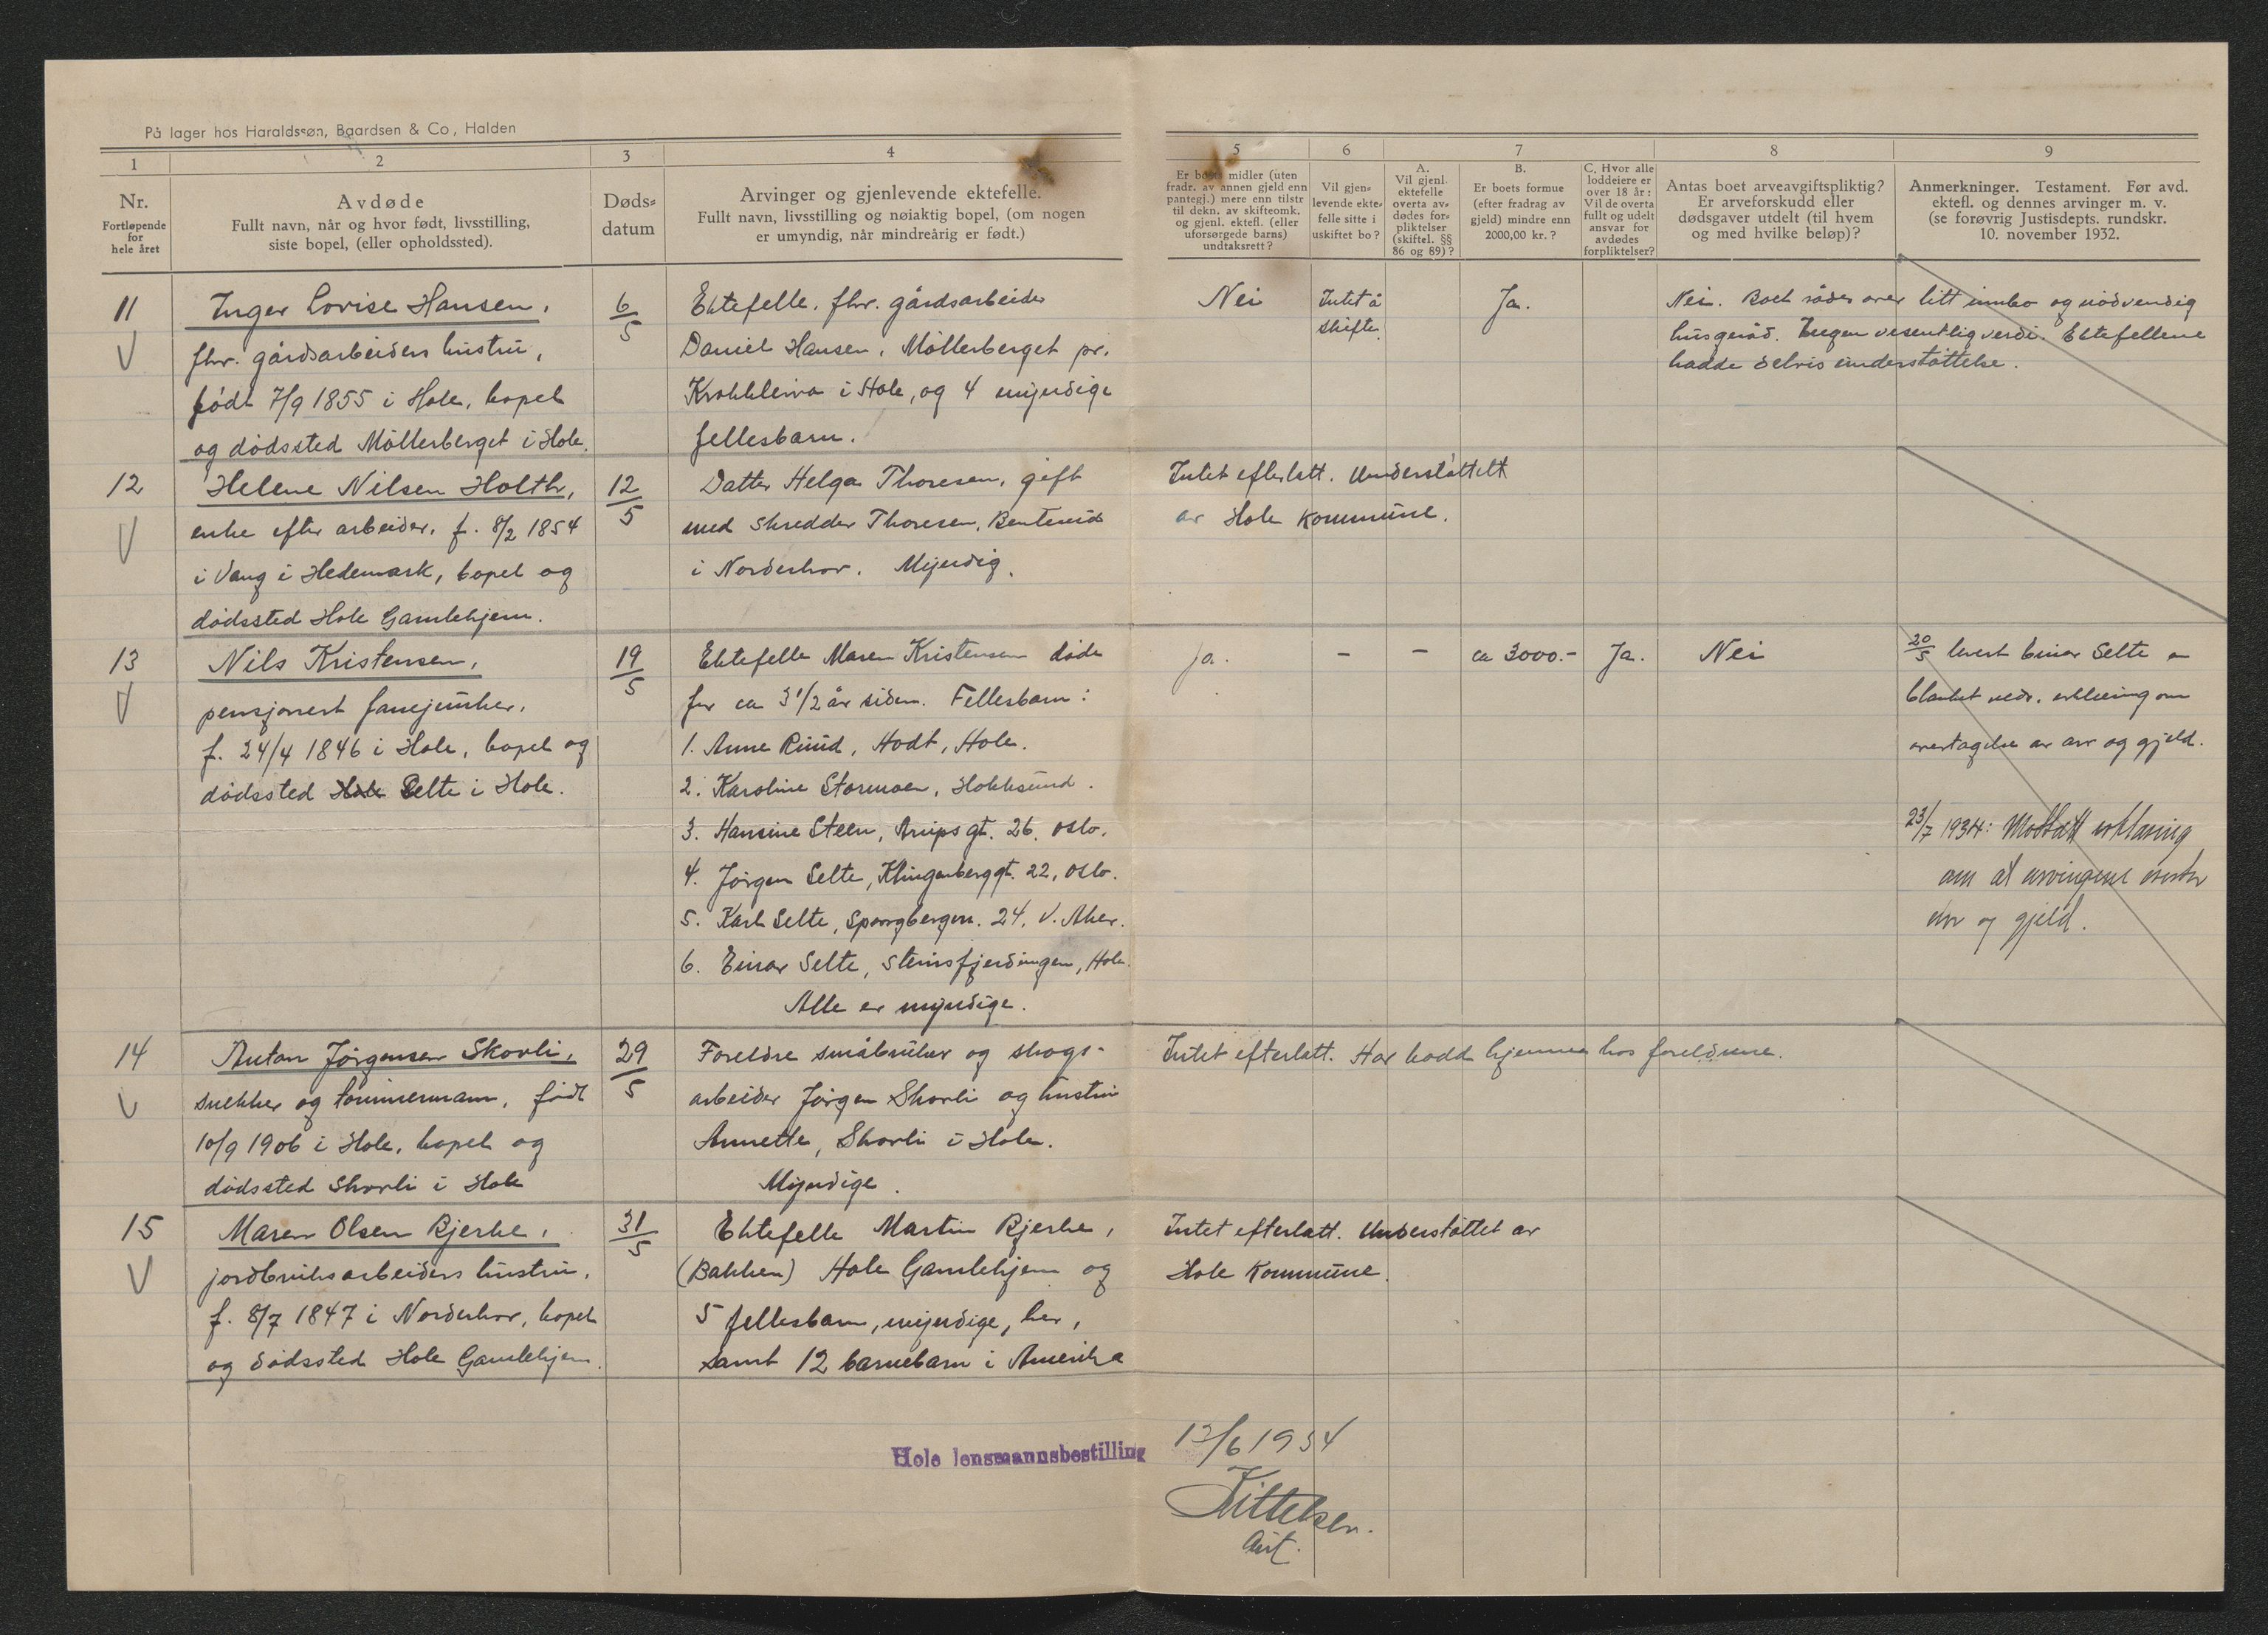 På lager hos Haraldssøn, Baardsen & Co, Halden
1
2
3
4
Nr.
Fortløpende
for
hele året
Avdøde
Fullt navn, når og hvor født, livsstilling,
siste bopel, (eller opholdssted).
Døds-
datum
Arvinger og gjenlevende ektefelle.
Fullt navn, livsstilling og nøiaktig bopel, (om nogen
er umyndig, når mindreårig er født.)
5
6
7
8
9
Er boets midler (uten
fradr. av annen gjeld enn
pantegj.) mere enn tilstr
til dekn. av skifteomk.
og gjenl. ektefl. (eller
uforsørgede barns)
undtaksrett?
Vil gjen-
levende ekte-
felle sitte i
uskiftet bo?
A.
Vil gjenl.
ektefelle
overta av-
dødes for-
pliktelser
(skiftel. §§
86 og 89)?
B.
Er boets formue
(efter fradrag av
gjeld) mindre enn
2000,00 kr.?
C. Hvor alle
loddeiere er
over 18 år:
Vil de overta
fullt og udelt
ansvar for
avdødes
forpliktelser?
Antas boet arveavgiftspliktig?
Er arveforskudd eller
dødsgaver utdelt (til hvem
og med hvilke beløp)?
Anmerkninger. Testament. Før avd.
ektefl. og dennes arvinger m. v.
(se forøvrig Justisdepts. rundskr.
10. november 1932.
11
Inger Lovise Hansen,
fhv. gårdsarbeiders hustru,
født 7/9 1855 i Hole, bopel
og dødssted Möllerberget i Hole.
6/5
Ektefelle, fhv. gårdsarbeider
Daniel Hansen, Möllerberget pr.
Krokkleiva i Hole, og 4 myndige
fellesbarn.
Nei
Intet å
skifte.
Ja.
Nei. Boet råder over litt innbo og nødvendig
husgeråd. Ingen vesentlig verdi. Ektefellene
hadde delvis understøttelse.
12
Helene Nilsen Holth,
enke efter arbeider, f. 8/2 1854
i Vang i Hedemark, bopel og
dødssted Hole Gamlehjem.
12/5
Datter Helga Thoresen, gift
med skredder Thoresen, Benterud
i Norderhov. Myndig.
Intet efterlatt. Understøttett
av Hole Kommune.
13
Nils Kristensen,
pensjonert fanejunker,
f. 24/4 1846 i Hole, bopel og
dødssted Hole Selte i Hole.
19/5
Ektefelle Maren Kristensen døde
for ca 3 1/2 år siden. Fellesbarn:
1. Anne Ruud, Hodt, Hole.
2. Karoline Stormoen, Hokksund.
3. Hansine Steen, Arupsgt. 26. Oslo.
4. Jørgen Selte, Klingenberggt. 22, Oslo.
5. Karl Selte, Sporrgbergsv. 24, V. Aker.
6. Einar Selte, Steinsfjerdingen, Hole.
Alle er myndige.
Ja.
–
–
ca 3000.-
Ja.
Nei
20/5 levert Einar Selte en
blankett vedr. erklæring om
overtagelse av arv og gjeld.
23/7 1934: Mottatt erklæring
om at arvingene overtar
arv og gjeld.
14
Anton Jørgensen Skovli,
snekker og tømmermann, født
10/9 1906 i Hole, bopel og
dødssted Skovli i Hole
29/5
Foreldre småbruker og skogs-
arbeider Jørgen Skovli og hustru
Annette, Skovli i Hole.
Myndige.
Intet efterlatt. Har hadd hjemme hos foreldrene.
15
Maren Olsen Bjerke,
jordbruksarbeiders hustru,
f. 8/7 1847 i Norderhov, bopel
og dødssted Hole Gamlehjem.
31/5
Ektefelle Martin Bjerke,
(Bakken) Hole Gamlehjem og
5 fellesbarn, myndige, her,
samt 12 barnebarn i Amerika
Intet efterlatt. Understøttet av
Hole Kommune.
Hole lensmannsbestilling
13/6 1934
Kittelsen.
Aut.